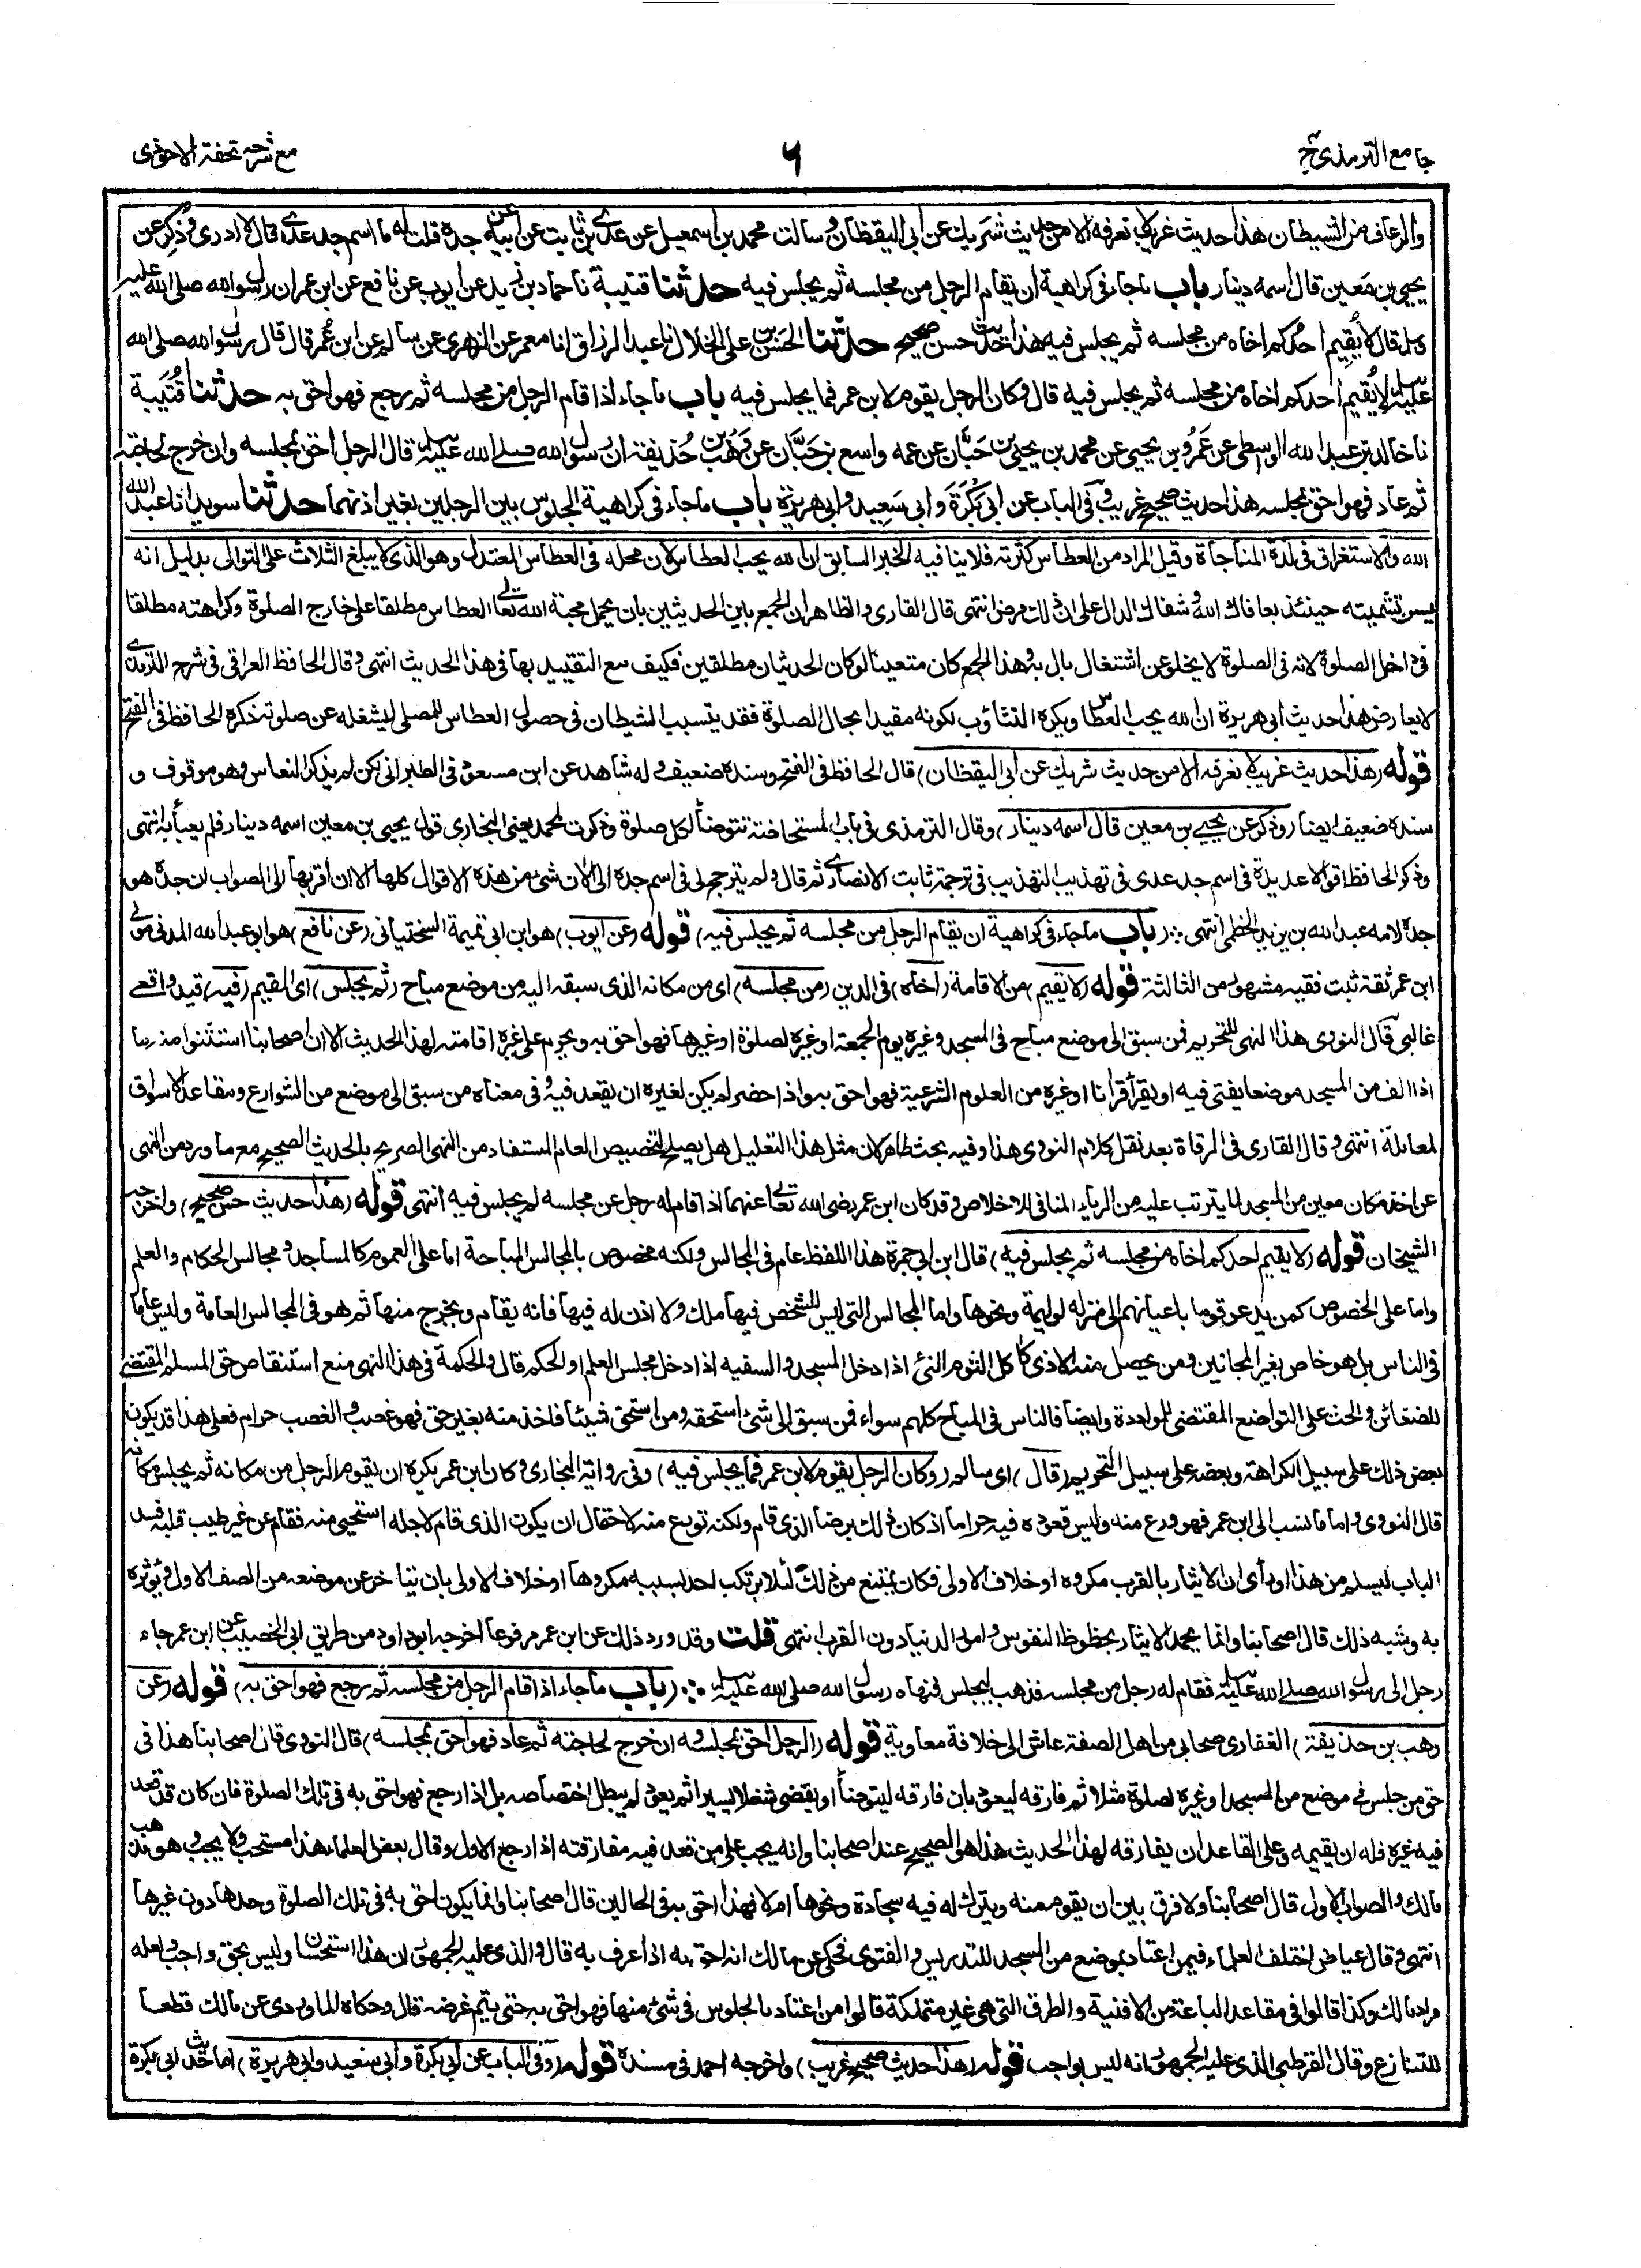 جامع الترمذى ج ٤
٦
مع شرحه تحفة الاحوذى
والرعاف من الشيطان هذا حديث غريب لا نعرفه الا من حديث شريك عن ابى اليقظان وسالت محمد بن اسمعيل عن عدى بن ثابت عن ابيه عن جده قلت له ما اسم جد عدى قال لا ادرى وذكر عن
يحيى بن معين قال اسمه دينار باب ماجاء فى كراهية ان يقام الرجل من مجلسه ثم يجلس فيه حدثنا قتيبة نا حماد بن زيد عن ايوب عن نافع عن ابن عمر ان رسول الله صلى الله عليه
وسلم قال لا يقيم احدكم اخاه من مجلسه ثم يجلس فيه هذا حديث حسن صحيح حدثنا الحسن بن على الخلال نا عبد الرزاق انا معمر عن الزهرى عن سالم عن ابن عمر قال قال رسول الله صلى الله
عليه وسلم لا يقيم احدكم اخاه من مجلسه ثم يجلس فيه قال وكان الرجل يقوم لابن عمر فما يجلس فيه باب ماجاء اذا قام الرجل من مجلسه ثم رجع فهو احق به حدثنا قتيبة
نا خالد بن عبد الله الواسطى عن عمرو بن يحيى عن محمد بن يحيى بن حبان عن عمه واسع بن حبان عن وهب بن حذيفة ان رسول الله صلى الله عليه وسلم قال الرجل احق بمجلسه وان خرج لحاجته
ثم عاد فهو احق بمجلسه هذا حديث صحيح غريب وفى الباب عن ابى بكرة وابى سعيد وابى هريرة باب ماجاء فى كراهية الجلوس بين الرجلين بغير اذنهما حدثنا سويد انا عبد الله
الله والاستغراق فى لذة المناجاة وقيل المراد من العطاس كثرته فلا ينافيه الخبر السابق ان الله يحب العطاس لان محله فى العطاس المعتدل وهو الذى لا يبلغ الثلاث على التوالى بدليل انه
يسن تشميته حينئذ بعافاك الله وشفاك الدال على ان ذلك مرض انتهى قال القارى والظاهر ان الجمع بين الحديثين بان يحمل محبة الله تعالى العطاس مطلقا على خارج الصلوة وكراهته مطلقا
فى داخل الصلوة لانه فى الصلوة لا يخلو عن اشتغال بال به وهذا الجمع كان متعينا لو كان الحديثان مطلقين فكيف مع التقييد بها فى هذا الحديث انتهى وقال الحافظ العراقى فى شرح الترمذى
لا يعارض هذا حديث ابى هريرة ان الله يحب العطاس ويكره التثاؤب لكونه مقيدا بحال الصلوة فقد يتسبب الشيطان فى حصول العطاس للمصلى ليشغله عن صلوته ذكره الحافظ فى الفتح
قوله (هذا حديث غريب لا نعرفه الا من حديث شريك عن ابى اليقظان) قال الحافظ فى الفتح وسنده ضعيف وله شاهد عن ابن مسعود فى الطبرانى لكن لم يذكر النعاس وهو موقوف و
سنده ضعيف ايضا (وذكر عن يحيى بن معين قال اسمه دينار) وقال الترمذى فى باب المستحاضة تتوضأ لكل صلوة وذكرت لمحمد يعنى البخارى قول يحيى بن معين اسمه دينار فلم يعبأ به انتهى
وذكر الحافظ اقوالا عديدة فى اسم جد عدى فى تهذيب التهذيب فى ترجمة ثابت الانصارى ثم قال ولم يترجح لى فى اسم جده الى الآن شئ من هذه الاقوال كلها الا ان اقربها الى الصواب ان جده هو
جده لامه عبد الله بن يزيد الخطمى انتهى (باب ماجاء فى كراهية ان يقام الرجل من مجلسه ثم يجلس فيه) قوله (عن ايوب) هو ابن ابى تميمة السختيانى (عن نافع) هو ابو عبد الله المدنى مولى
ابن عمر ثقة ثبت فقيه مشهور من الثالثة قوله (لا يقيم) من الاقامة (اخاه) فى الدين (من مجلسه) اى من مكانه الذى سبقه اليه من موضع مباح (ثم يجلس) اى المقيم (فيه) قيد واقعى
غالبى قال النووى هذا النهى للتحريم فمن سبق الى موضع مباح فى المسجد وغيره يوم الجمعة او غيره لصلوة او غيرها فهو احق به ويحرم على غيره اقامته لهذا الحديث الا ان اصحابنا استثنوا منه ما
اذا الف من المسجد موضعا يفتى فيه او يقرأ قرآنا او غيره من العلوم الشرعية فهو احق به واذا حضر لم يكن لغيره ان يقعد فيه وفى معناه من سبق الى موضع من الشوارع ومقاعد الاسواق
لمعاملة انتهى وقال القارى فى المرقاة بعد نقل كلام النووى هذا وفيه بحث ظاهر لان مثل هذا التعليل هل يصلح لتخصيص العام المستفاد من النهى الصريح بالحديث الصحيح مع ما ورد من النهى
عن اخذ مكان معين من المسجد لما يترتب عليه من الرياء المنافى للاخلاص وقد كان ابن عمر رضى الله تعالى عنهما اذا قام له رجل عن مجلسه لم يجلس فيه انتهى قوله (هذا حديث حسن صحيح) واخرجه
الشيخان قوله (لا يقيم احدكم اخاه من مجلسه ثم يجلس فيه) قال ابن ابى جمرة هذا اللفظ عام فى المجالس ولكنه مخصوص بالمجالس المباحة اما على العموم كالمساجد ومجالس الحكام والعلم
واما على الخصوص كمن يدعو قوما باعيانهم الى منزله لوليمة ونحوها واما المجالس التى ليس للشخص فيها ملك ولا اذن له فيها فانه يقام ويخرج منها ثم هو فى المجالس العامة وليس عاما
فى الناس بل هو خاص بغير المجانين ومن يحصل منه الاذى كآكل الثوم النئ اذا دخل المسجد والسفيه اذا دخل مجلس العلم او الحكم قال والحكمة فى هذا النهى منع استنقاص حق المسلم المقتضى
للضغائن والحث على التواضع المقتضى للمواددة وايضا فالناس فى المباح كلهم سواء فمن سبق الى شئ استحقه ومن استحق شيئا فاخذ منه بغير حق فهو غصب والغصب حرام فعلى هذا قد يكون
بعض ذلك على سبيل الكراهة وبعضه على سبيل التحريم (قال) اى سالم (وكان الرجل يقوم لابن عمر فما يجلس فيه) وفى رواية البخارى وكان ابن عمر يكره ان يقوم الرجل من مكانه ثم يجلس مكانه
قال النووى واما ما نسب الى ابن عمر فهو ورع منه وليس قعوده فيه حراما اذ كان ذلك برضا الذى قام ولكنه تورع منه لاحتمال ان يكون الذى قام لاجله استحيى منه فقام عن غير طيب قلبه فسد
الباب ليسلم من هذا او رأى ان الايثار بالقرب مكروه او خلاف الاولى فكان يمتنع من ذلك لئلا يرتكب احد بسببه مكروها او خلاف الاولى بان يتاخر عن موضعه من الصف الاول ويؤثره
به وشبه ذلك قال اصحابنا وانما يحمد الايثار بحظوظ النفوس وامور الدنيا دون القرب انتهى قلت وقد ورد ذلك عن ابن عمر مرفوعا اخرجه ابو داود من طريق ابى الخصيب عن ابن عمر جاء
رجل الى رسول الله صلى الله عليه وسلم فقام له رجل من مجلسه فذهب ليجلس فنهاه رسول الله صلى الله عليه وسلم (باب ماجاء اذا قام الرجل من مجلسه ثم رجع فهو احق به) قوله (عن
وهب بن حذيفة) الغفارى صحابى من اهل الصفة عاش الى خلافة معاوية قوله (الرجل احق بمجلسه وان خرج لحاجته ثم عاد فهو احق بمجلسه) قال النووى قال اصحابنا هذا فى
حق من جلس فى موضع من المسجد او غيره لصلوة مثلا ثم فارقه ليعود بان فارقه ليتوضأ او يقضى شغلا يسيرا ثم يعود لم يبطل اختصاصه بل اذا رجع فهو احق به فى تلك الصلوة فان كان قد قعد
فيه غيره فله ان يقيمه وعلى القاعد ان يفارقه لهذا الحديث هذا هو الصحيح عند اصحابنا وانه يجب على من قعد فيه مفارقته اذا رجع الاول وقال بعض العلماء هذا مستحب ولا يجب وهو مذهب
مالك والصواب الاول قال اصحابنا ولا فرق بين ان يقوم منه ويترك له فيه سجادة ونحوها ام لا فهذا احق به فى الحالين قال اصحابنا وانما يكون احق به فى تلك الصلوة وحدها دون غيرها
انتهى وقال عياض اختلف العلماء فيمن اعتاد بموضع من المسجد للتدريس والفتوى فحكى عن مالك انه احق به اذا عرف به قال والذى عليه الجمهور ان هذا استحسان وليس بحق واجب ولعله
مراد مالك وكذا قالوا فى مقاعد الباعة من الافنية والطرق التى هى غير متملكة قالوا من اعتاد بالجلوس فى شئ منها فهو احق به حتى يتم غرضه قال وحكاه الماوردى عن مالك قطعا
للتنازع وقال القرطبى الذى عليه الجمهور انه ليس بواجب قوله (هذا حديث صحيح غريب) واخرجه احمد فى مسنده قوله (وفى الباب عن ابى بكرة وابى سعيد وابى هريرة) اما حديث ابى بكرة